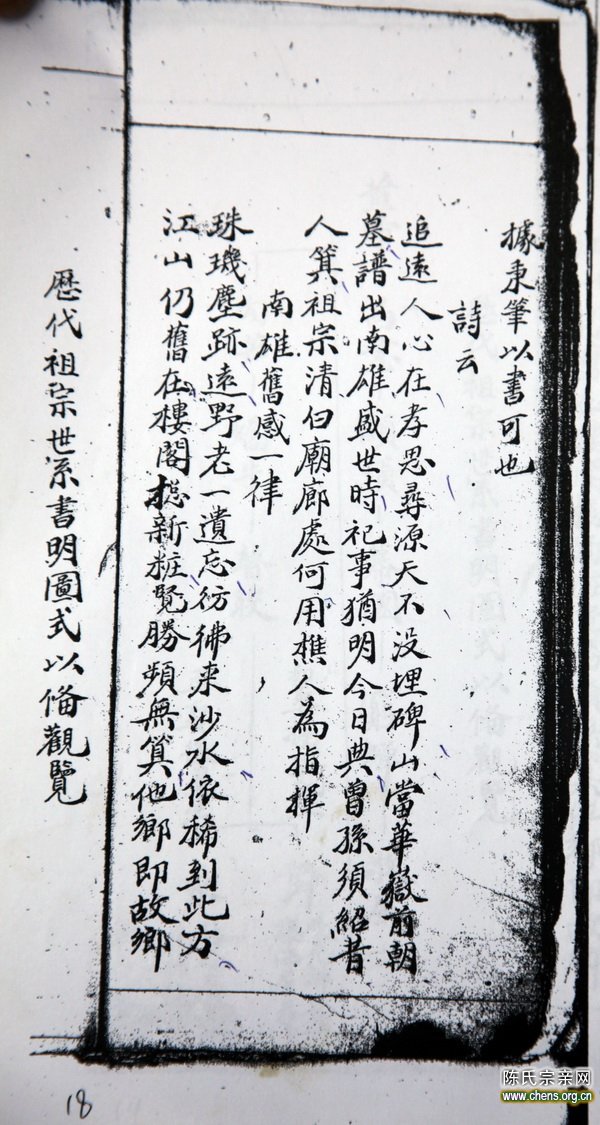 據秉筆以書可也
詩云
追遠人心在孝思尋源天不没埋碑山當華嶽前朝
墓譜出南雄盛世時祀事猶明今日典曾孫須紹昔
人箕祖宗清白廟廊處何用樵人為指揮
南雄舊感一律
珠璣塵跡遠野老一遺忘彷彿來沙水依稀到此方
江山仍舊在樓閣樬新粧覽勝頻無算他鄉即故鄉
歷代祖宗世系書明圖式以俻觀覽
18
陈氏宗亲网
www.chens.org.cn